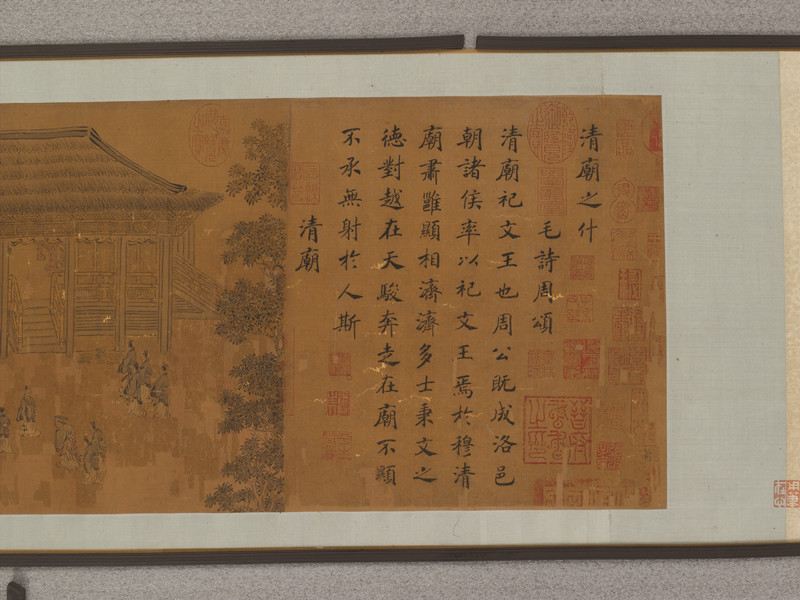 清廟之什
毛詩周頌
清廟祀文王也周公既成洛邑
朝諸侯率以祀文王焉於穆清
廟肅雝顯相濟濟多士秉文之
德對越在天駿奔走在廟不顯
不承無射於人斯
清廟